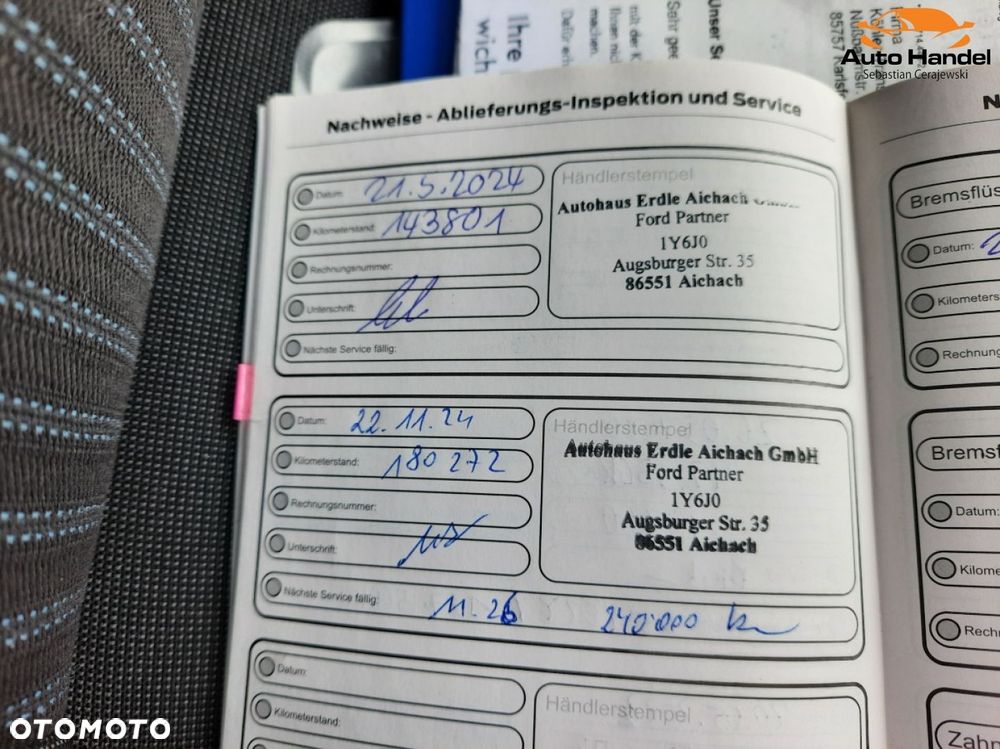 Auto Handel
Sebastian Cerajewski
Ihre
wich
Unser Se
Sehr gee
mit der K
Ihnen nich
machen.
85757 Karlsf
Nachweise - Ablieferungs-Inspektion und Service
N
Datum: 21.5.2024
Kilometerstand: 143801
Rechnungsnummer:
Unterschrift:
Nächste Service fällig:
Händlerstempel
Autohaus Erdle Aichach GmbH
Ford Partner
1Y6J0
Augsburger Str. 35
86551 Aichach
Datum: 22.11.24
Kilometerstand: 180272
Rechnungsnummer:
Unterschrift:
Nächste Service fällig: 11.26 240.000 km
Händlerstempel
Autohaus Erdle Aichach GmbH
Ford Partner
1Y6J0
Augsburger Str. 35
86551 Aichach
Datum:
Kilometerstand:
Händlerstempel
Bremsflüs
Datum:
Kilometers
Rechnung
Bremsf
Datum:
Kilome
Rechn
Zahn
OTOMOTO